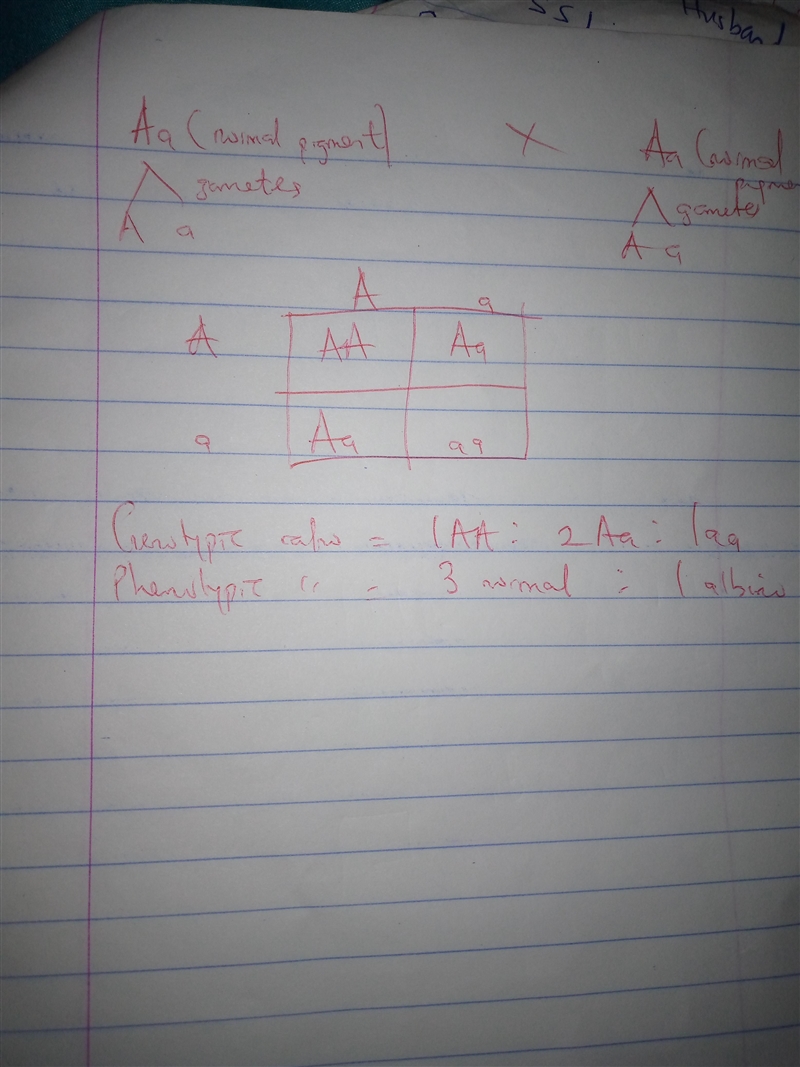 SSI. Husband
Aa (normal pigment) X Aa (normal pigmen
gametes gametes
A a A a
A a
A AA Aa
a Aa aa
Genotypic ratio = 1AA : 2Aa : 1aa
Phenotypic " = 3 normal : 1 albino